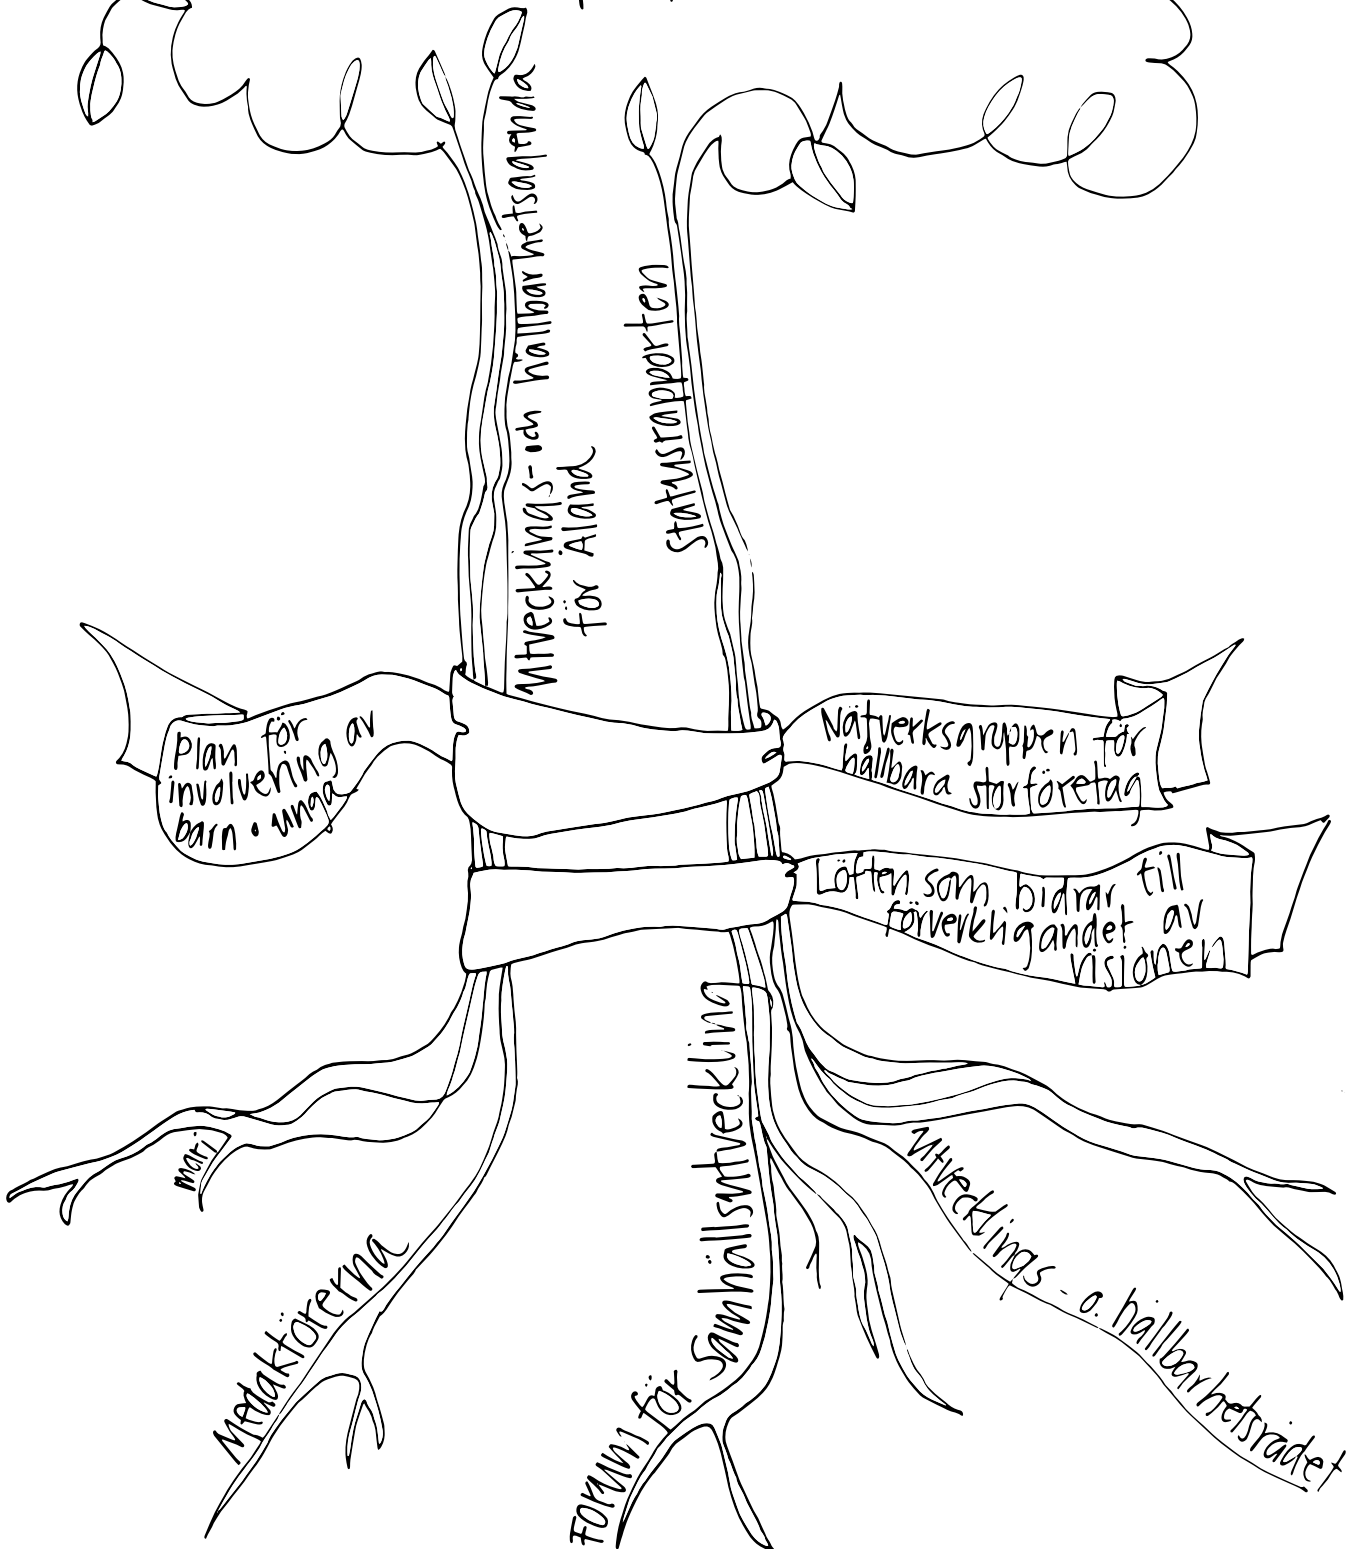 Utvecklings- och hållbarhetsagenda
för Åland
Statusrapporten
Plan för
involvering av
barn o unga
Nätverksgruppen för
hållbara storföretag
Löften som bidrar till
förverkligandet av
visionen
mari
Medaktörerna
Forum för Samhällsutveckling
Utvecklings- o. hållbarhetsrådet